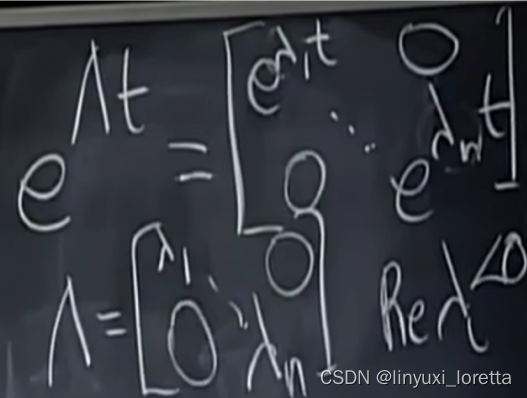 e^{Λt} = [e^{λ₁t} 0 ⋱ 0 e^{λₙt}]
Λ = [λ₁ 0 ⋱ 0 λₙ] Re λ < 0
CSDN @linyuxi_loretta